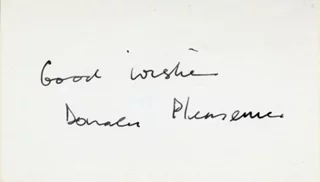 Good wishes
Donald Pleasence